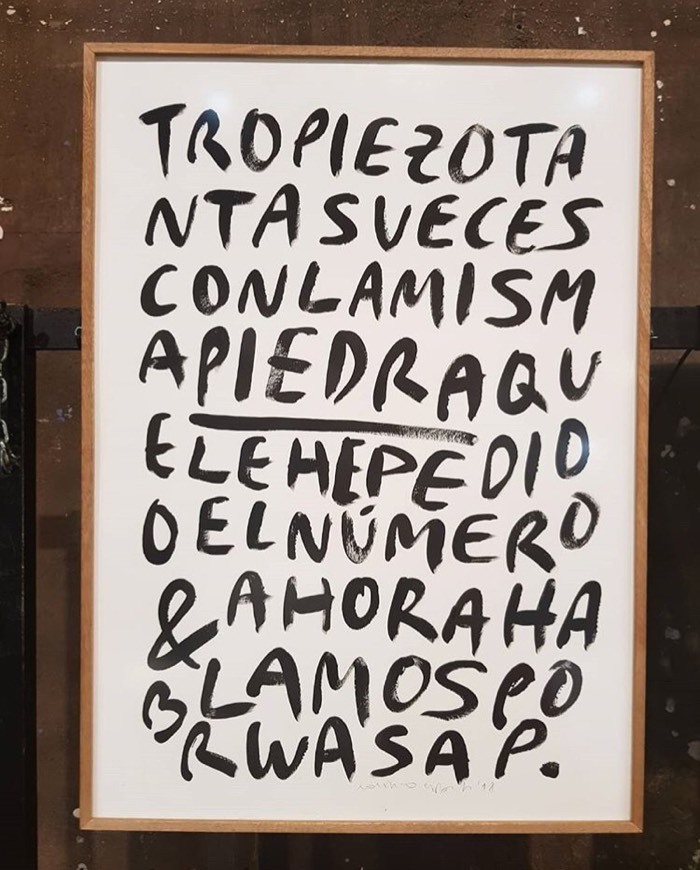 TROPIEZOTA
NTASVECES
CONLAMISM
APIEDRAQU
ELEHEPEDID
OELNÚMERO
&AHORAHA
BLAMOSPO
RWASAP.